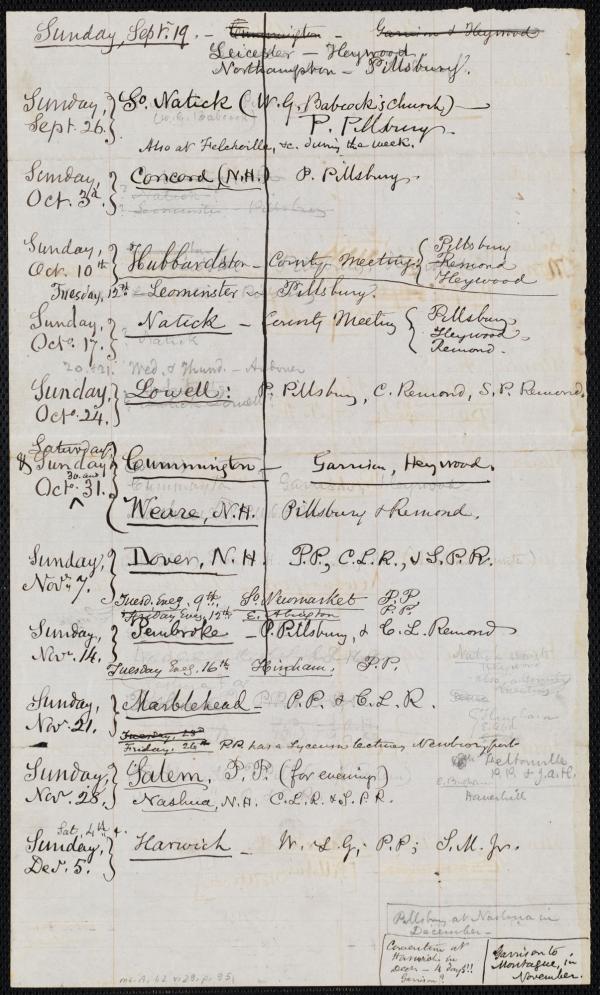 Sunday, Sept. 19. - Cummington - Garrison & Heywood
Leicester - Heywood.
Northampton - Pillsbury.
Sunday, Sept. 26. So. Natick (W. G. Babcock's church) -
P. Pillsbury.
Also at Feltonville, &c. during the week.
Sunday, Oct. 3d Concord (N.H.) P. Pillsbury.
Sunday, Oct. 10th Hubbardston - County Meeting: Pillsbury
Remond
Heywood
Tuesday, 12th. - Leominster Pillsbury.
Sunday, Octo. 17. Natick - County Meeting Pillsbury
Heywood
Remond.
20. & 21. Wed. & Thurs. - Andover
Sunday, Octo. 24. Lowell: P. Pillsbury, C. Remond, S. P. Remond.
Saturday, & Sunday, Octo. 30. and 31. Cummington - Garrison, Heywood.
Weare, N.H. Pillsbury & Remond.
Sunday, Novr. 7. Dover, N.H. P.P., C.L.R., & S.P.R.
Tuesd. Eveg. 9th, So. Newmarket P.P.
Friday Eveg. 12th E. Abington P.P.
Sunday, Novr. 14. Pembroke - P. Pillsbury, & C. L. Remond
Tuesday Eveg. 16th Hingham, P.P.
Sunday, Nov. 21. Marblehead - P.P. & C.L.R.
Tuesday, 23d
Friday, 26th P.P. has a Lyceum lecture, Newburyport
Feltonville
P.P. & J.A.H.
Sunday, Nov. 28. Salem, P.P. (for evening)
Nashua, N.H. C.L.R. & S.P.R.
Haverhill
Sat. 4th & Sunday, Dec. 5. Harwich - W.L.G; P.P; S.M. Jr.
Pillsbury at Nashua in
December -
Convention at
Harwich in
Decr. - 4 days!!
Garrison?
Garrison to
Montague, in
November.
Ms. A. 6.2 v.29, p. 95